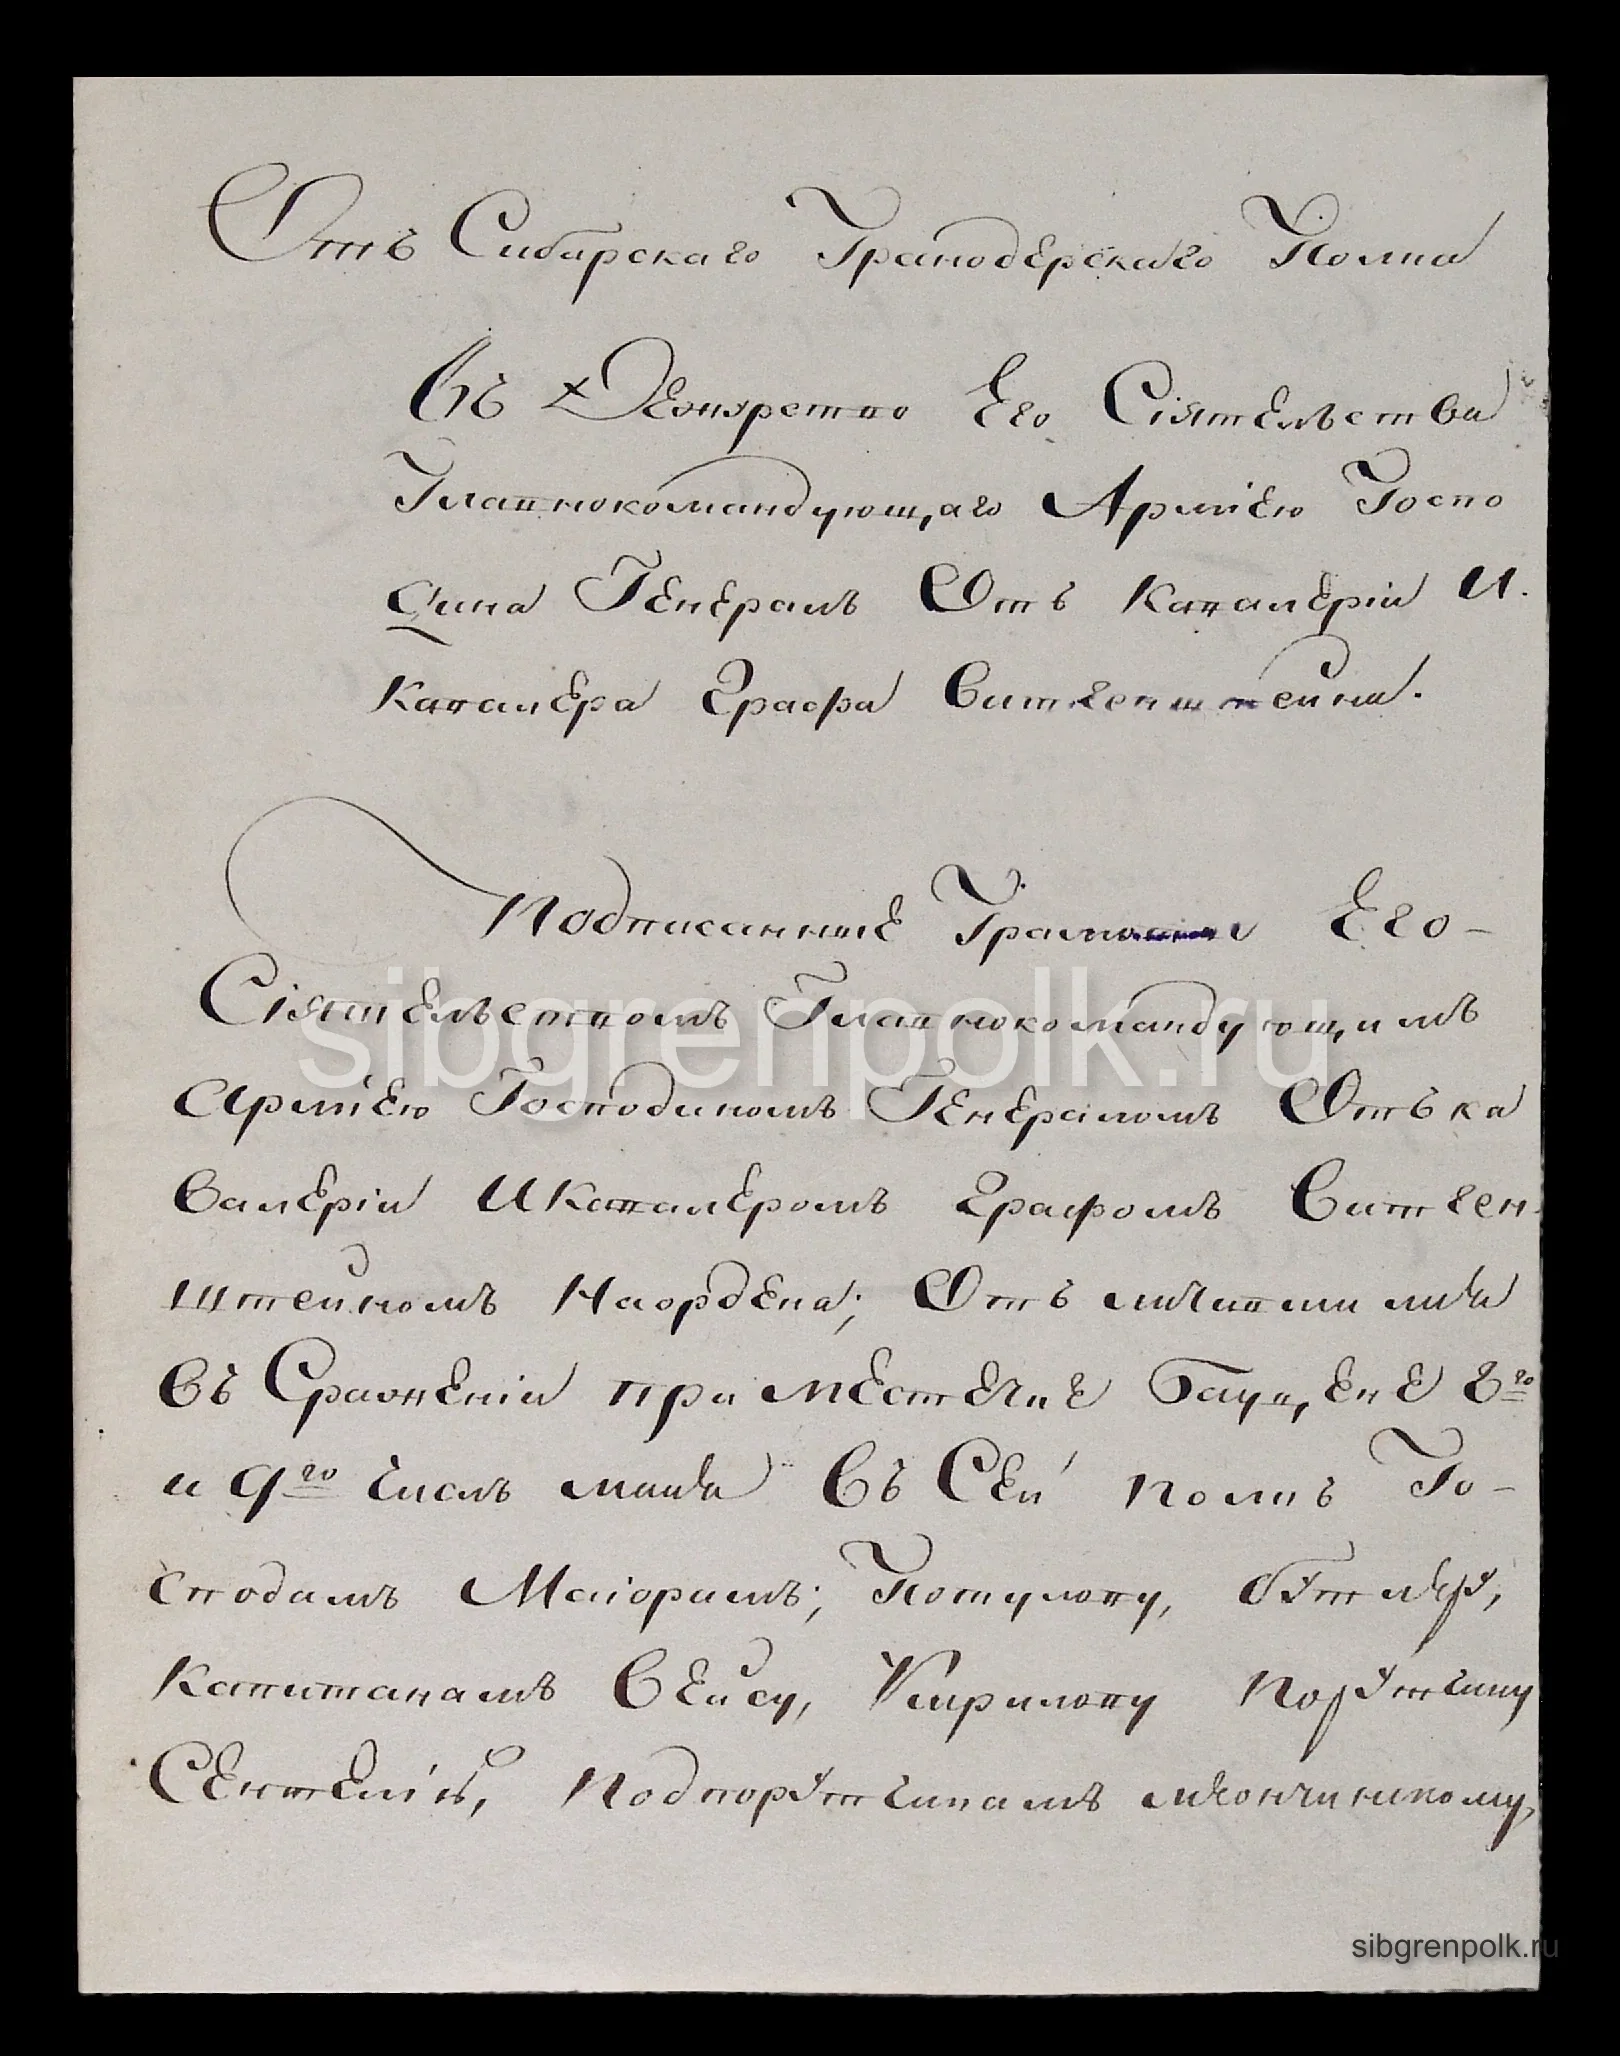 Отъ Сибирскаго Гранодерскаго Полка
Въ Дежурство Его Сіятельства
Главнокомандующаго Арміею Госпо
дина Генералъ Отъ Кавалеріи И
Кавалера Графа Витгенштейна.
Подписанные Его-
Сіятельствомъ Главнокомандующимъ
Арміею Господиномъ Генераломъ Отъ ка
валеріи И Кавалеромъ Графомъ Витген
штейномъ На ордена; Отъ личившимся
Въ Сраженіи при местечке Бауцене 8го
и 9го числъ маия Въ Сей полкъ Го-
сподамъ Маіорамъ; Потулову,
Капитанамъ Вейсу, Кирилову Порутчику
Подпорутчикамъ
sibgrenpolk.ru
sibgrenpolk.ru